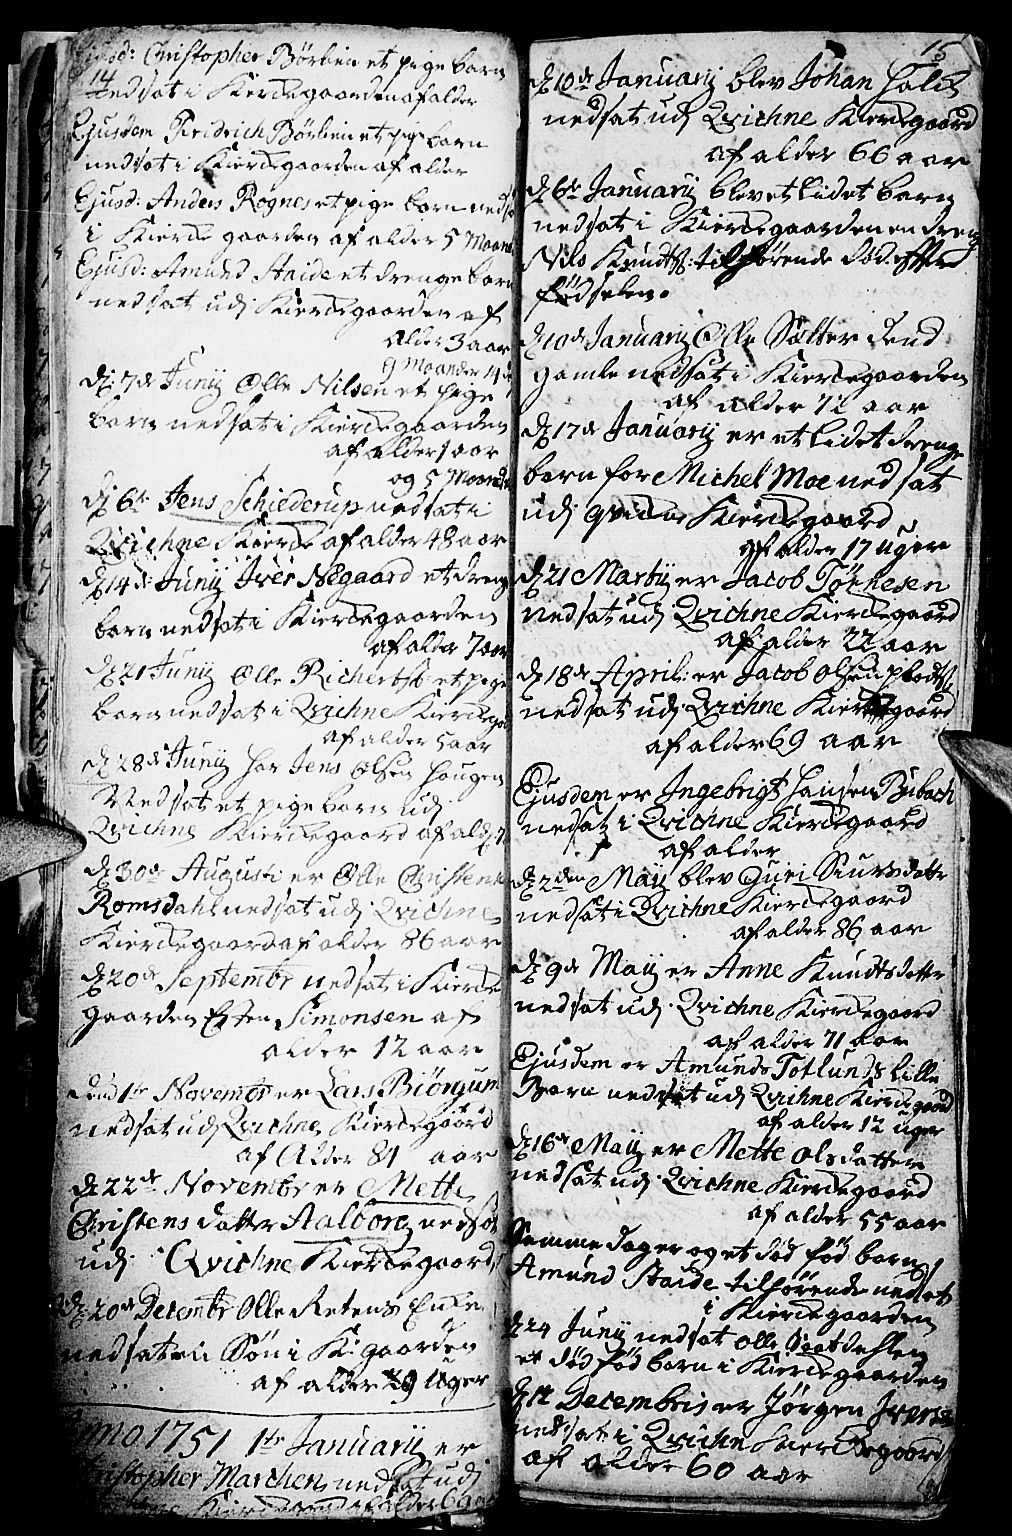 Ejusd: Christopher Börlien et pige barn
14
nedsat i Kierdegaarden af alder
Ejusdem Fridrich Börlien et pige barn
nedsat i Kierdegaarden af alder
Ejusd: Anders Rognes et pige barn nedsat
i Kierdegaarden af alder 5 Maaner
Ejusd: Amund Staide et drenge barn
nedsat udj Kierdegaarden af
alder 3 aar
9 Maander 14 d
dj 7de Junij Olle Nilsen et pige
barn nedsat i Kierdegaarden
af alder 1 aar
og 5 Maander
dj 6te Jens Schiederup nedsat i
Qvichne Kierde af alder 48 aar
dj 14de Junij Iver Negaard et dreng
barn nedsat i Kierdegaarden
af alder 7 aar
dj 21 Junij Olle Richerts et pige
barn nedsat i Qvichne Kierdegaa
af alder 5 aar
dj 28de Junij har Jens Olsen Haugen
Nedsat et pige barn udj
Qvichne Kierdegaard af ald
dj 30de Augusti er Olle Christens
Romsdahl nedsat udj Qvichne
Kierdegaard af alder 86 aar
dj 20de Septembr nedsat i Kierde
gaarden Esten Simonsen af
alder 12 aar
dend 1te Novembr er Lars Biörgum
nedsat udj Qvichne Kierdegaard
af Alder 81 aar
dj 22de Novembr er Mette
Christens datter Aalborg nedsat
udj Qvichne Kierdegaard
dj 20de Decembr Olle Retens Enke
nedsat en Sön i K: gaarden
af alder 29 Uger
Anno 1751 1te Januarij er
Christopher Marchen nedsat udj
Kierdegaard af alder 69 aar
15
dj 10de Januarij blev Johan Holch
nedsat udj Qvichne Kierdegaard
af alder 66 aar
dj 6te Januarij blev et lidet barn
nedsat i Kierdegaarden en dreng
Nils Knudtß: tilhörende död efter
födselen.
dj 10de Januarij Olle Sætter dend
gamle nedsat i Kierdegaarden
af alder 72 aar
dj 17de Januarij er et lidet drenge
barn for Michel Moe nedsat
udj qvidne Kierdegaard
af alder 17 uger
dj 21 Martij er Jacob Tönnesen
nedsat udj Qvichne Kierdegaard
af alder 22 aar
dj 18de April: er Jacob Olsen
nedsat udj Qvichne Kierdegaard
af alder 69 aar
Ejusdem er Ingebrigt Hansen Bubach
nedsat i Qvichne Kierdegaard
af alder
dj 2den Maij blev Guri Siursdatter
nedsat i Qvichne Kierdegaard
af alder 86 aar
dj 9de Maij er Anne Knudtsdatter
nedsat udj Qvichne Kierdegaard
af alder 71 aar
Ejusdem er Amunds Totlunds lille
Barn nedsat udj Qvichne Kierdegaard
af alder 12 uger
dj 16de Maij er Mette olsdatter
nedsat udj Qvichne Kierdegaard
af alder 55 aar
Samme dag er og et död föd barn
Amund Staide tilhörende nedsat
i Kierdegaarden
dj 24 Junij nedsat Olle
et död föd barn i Kierdegaarden
dj 1te Decembris er Jörgen Iversen
nedsat i Qvichne Kierdegaard
af alder 60 aar